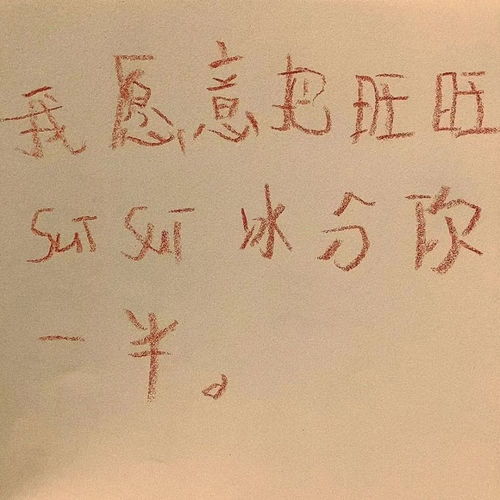 我愿意把旺旺
sui sui 冰分你
一半。